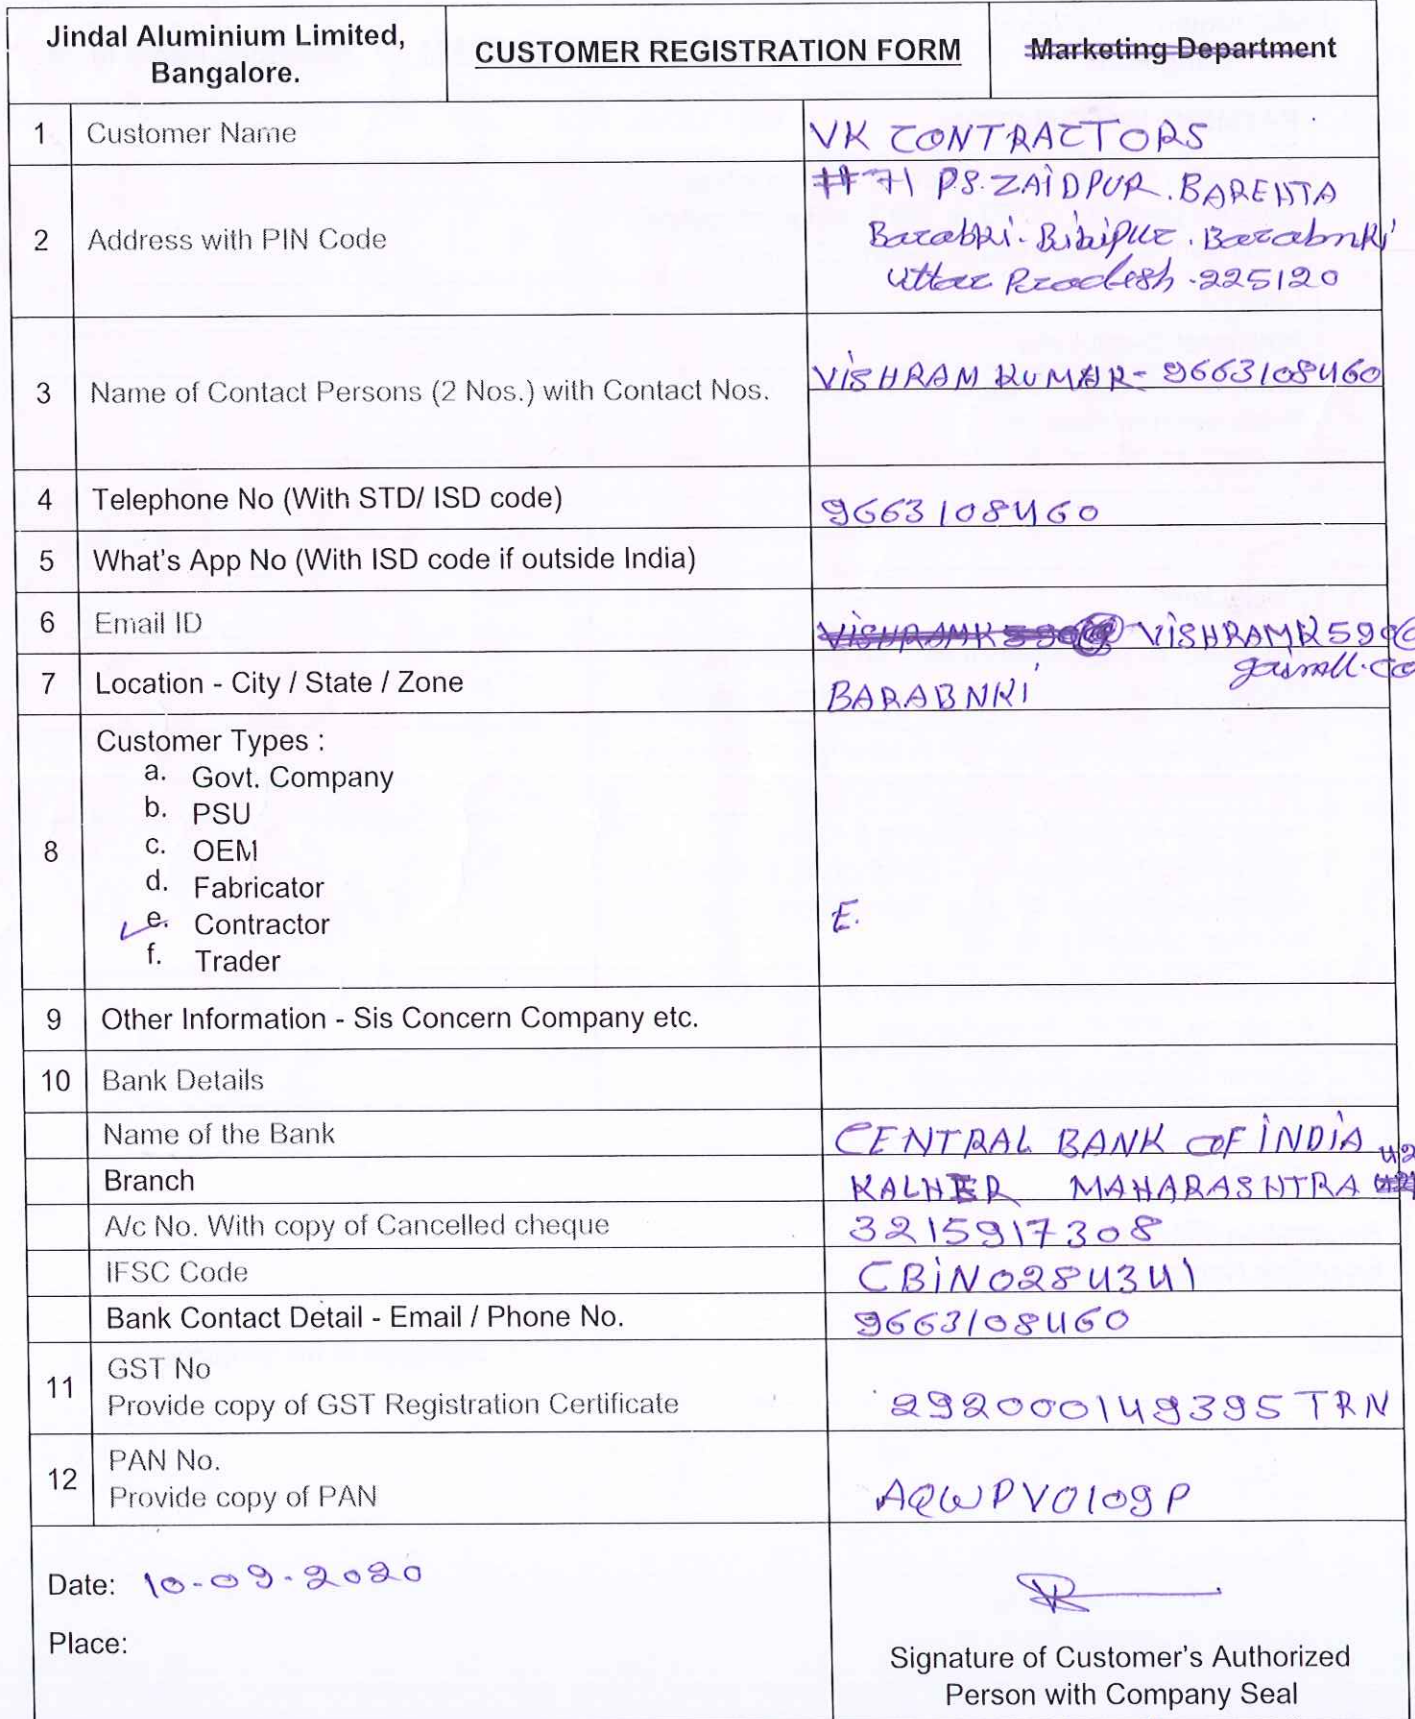 Jindal Aluminium Limited,
Bangalore.
CUSTOMER REGISTRATION FORM
Marketing Department
1 Customer Name VK CONTRACTORS
2 Address with PIN Code #71 P.S. ZAIDPUR. BAREHTA
Barabki. Bibipur. Barabnki
Uttar Pradesh - 225120
3 Name of Contact Persons (2 Nos.) with Contact Nos. VISHRAM KUMAR- 9663108460
4 Telephone No (With STD/ ISD code) 9663108460
5 What's App No (With ISD code if outside India)
6 Email ID VISHRAMK590@ VISHRAMK590@
gaimll.co
7 Location - City / State / Zone BARABNKI
8 Customer Types :
a. Govt. Company
b. PSU
c. OEM
d. Fabricator
e. Contractor E.
f. Trader
9 Other Information - Sis Concern Company etc.
10 Bank Details
Name of the Bank CENTRAL BANK OF INDIA
Branch KALHER MAHARASHTRA
A/c No. With copy of Cancelled cheque 3215917308
IFSC Code CBIN0284341
Bank Contact Detail - Email / Phone No. 9663108460
11 GST No
Provide copy of GST Registration Certificate 292000149395TRN
12 PAN No.
Provide copy of PAN AQWPV0109P
Date: 10-09-2020
Place:
Signature of Customer's Authorized
Person with Company Seal